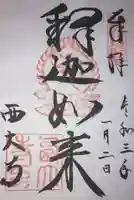 奉拝
令和三年
一月二日
釈迦如来
西大寺